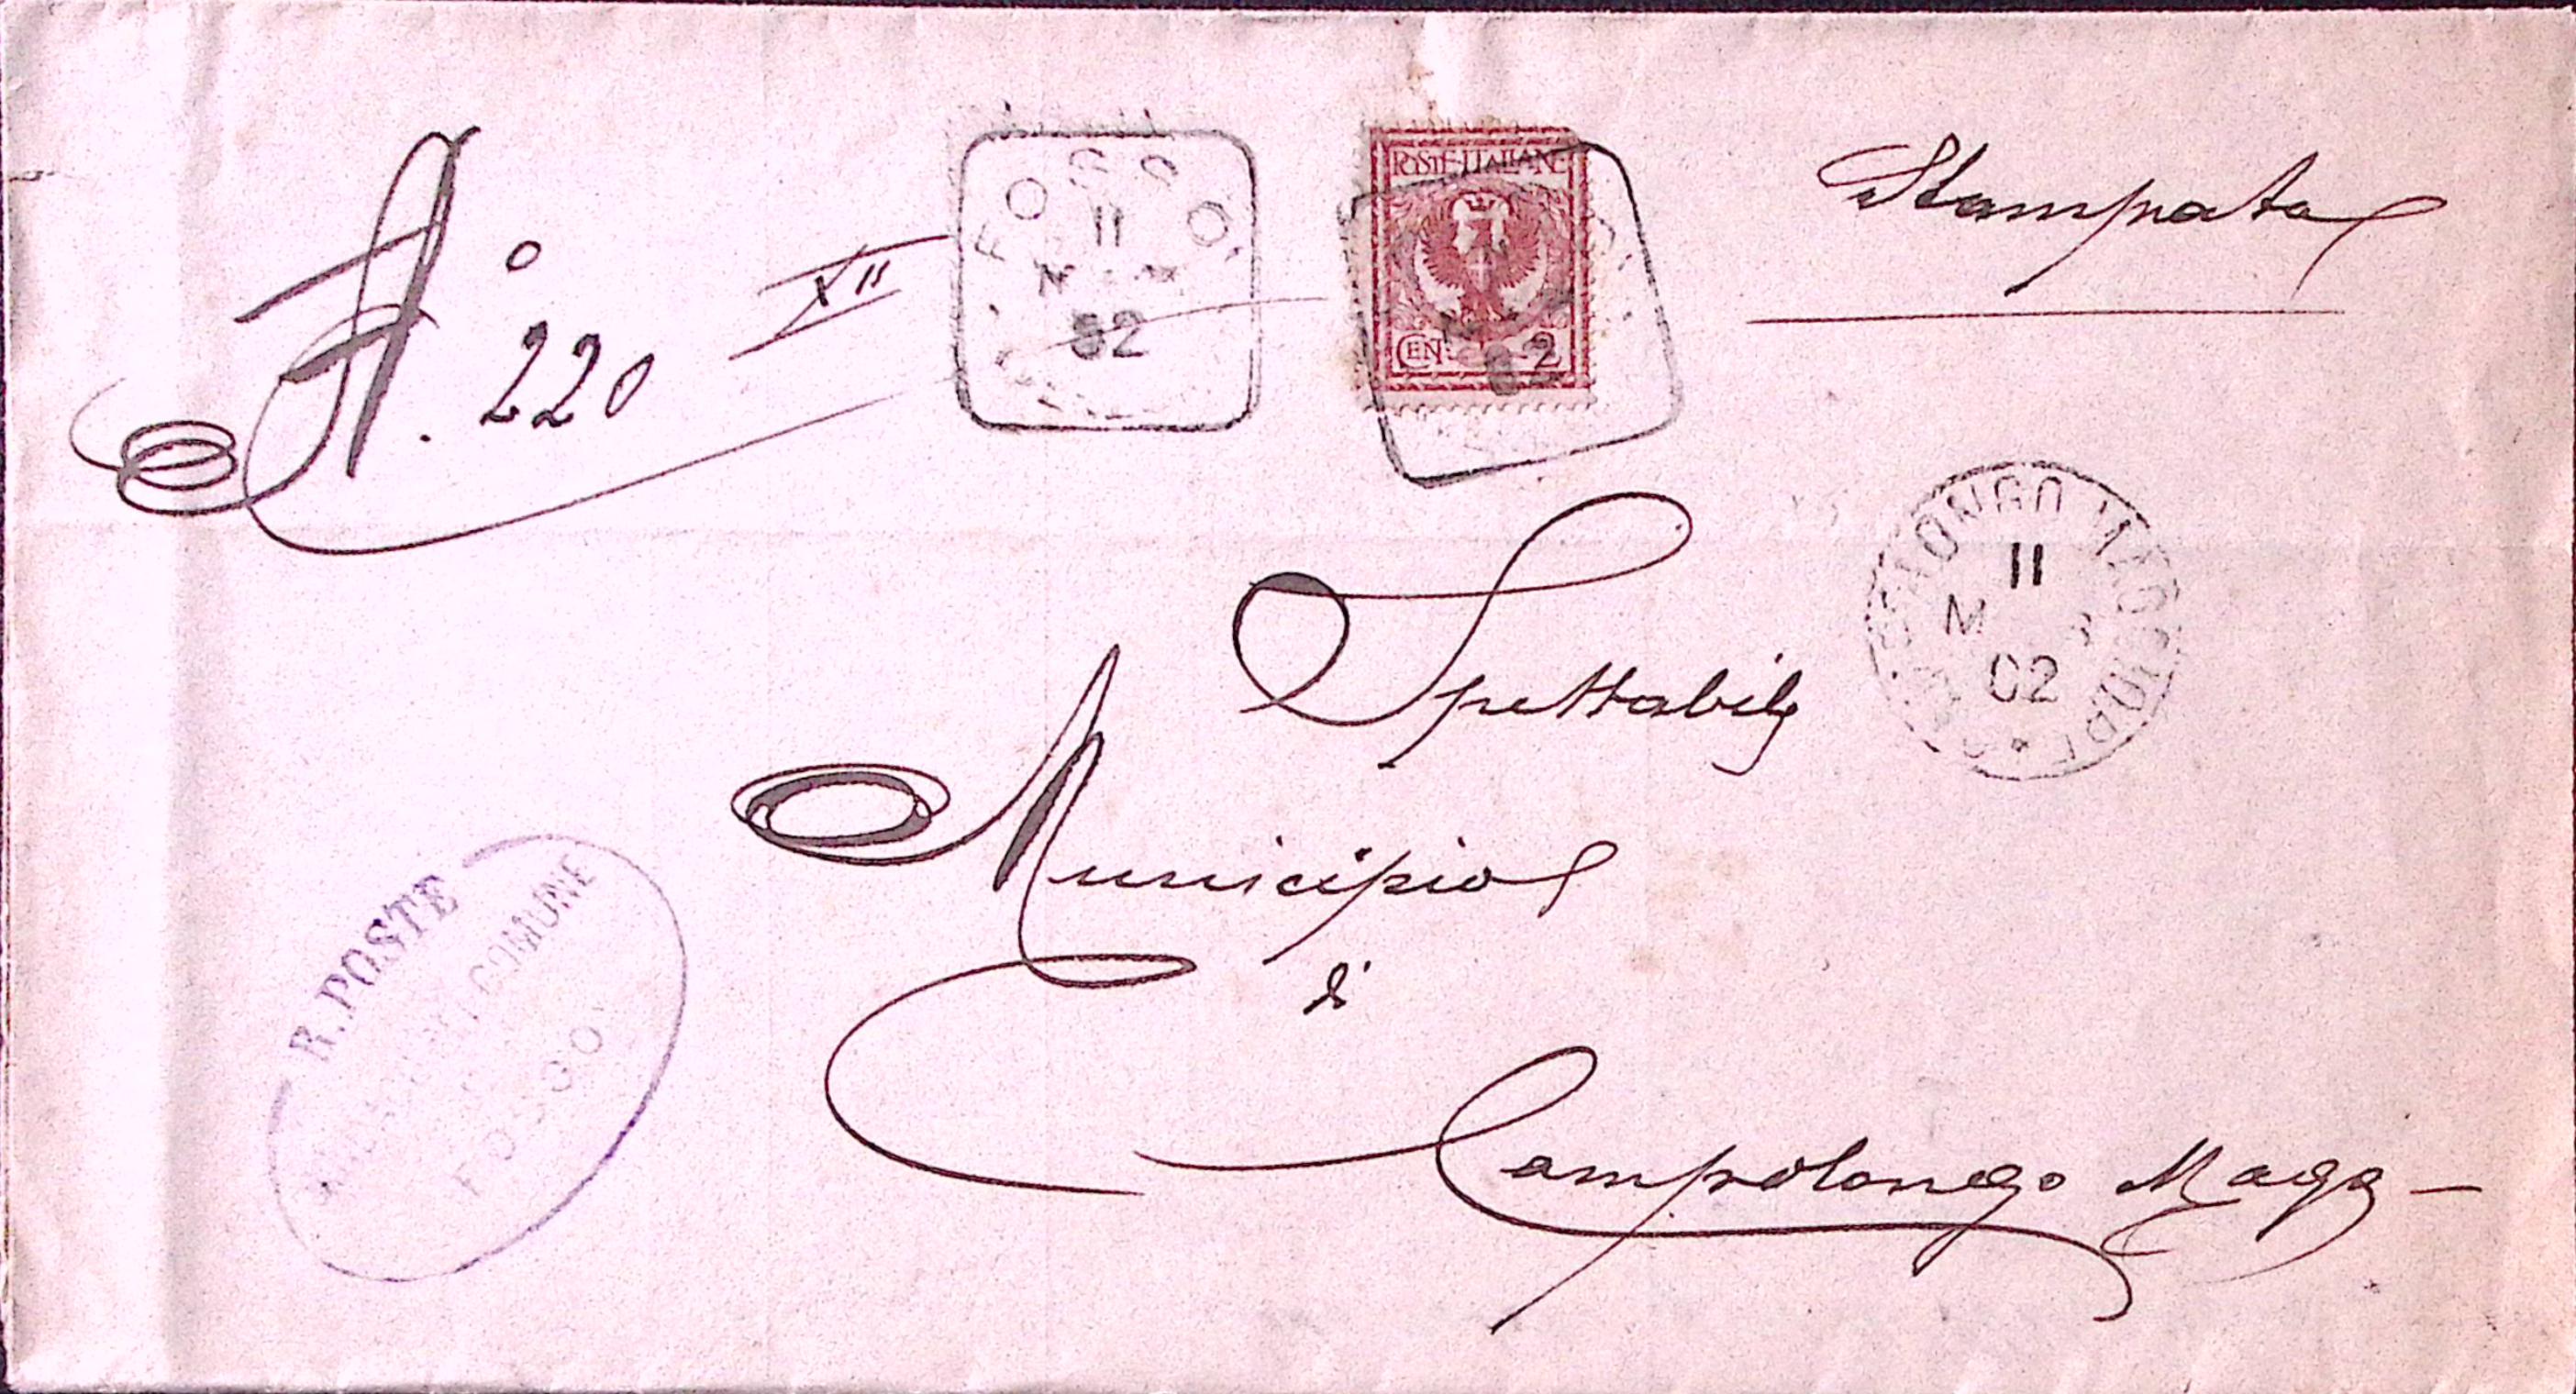 N.° 220 XII
FOSSO'
11
02
POSTE ITALIANE
CENT. 2
02
Stampata
CAMPOLONGO MAGGIORE
11
M
02
Spettabile
Municipio
di
Campolongo Magg
R. POSTE
COMUNE
FOSSO'